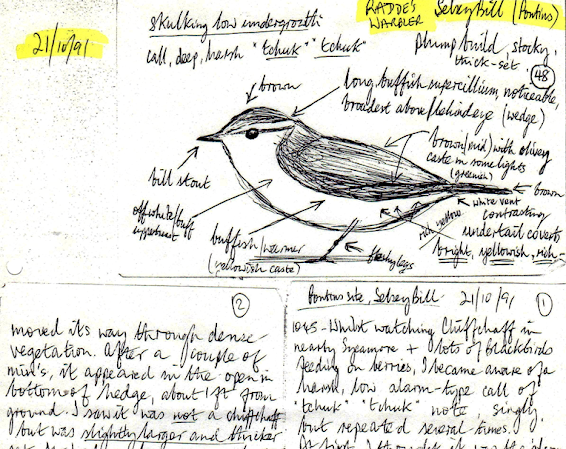 21/10/91
Skulking low undergrowth.
call, deep, harsh "tchuk" "tchuk"
RADDE'S
WARBLER
Selsey Bill (Pontins)
plump build, stocky,
thick-set
48
brown
long, buffish supercillium, noticeable,
broadest above/behind eye (wedge)
brown (mid) with olivey
caste in some lights
(greenish)
brown
bill stout
off white/buff
buffish/warmer
(yellowish caste)
fleshy legs
white vent
contrasting
undertail coverts
bright, yellowish, rich-
rich yellow
2
moved its way through dense
vegetation. After a couple of
min's, it appeared in the open in
bottom of hedge, about 1ft from
ground. I saw it was not a chiffchaff
but was slightly larger and thicker
Pontins site, Selsey Bill 21/10/91 1
1045 - Whilst watching Chiffchaff in
nearby Sycamore + lots of Blackbirds
feeding on berries, I became aware of a
harsh, low alarm-type call of
"tchuk" "tchuk" note, singly.
but repeated several times.
At first I thought it was the